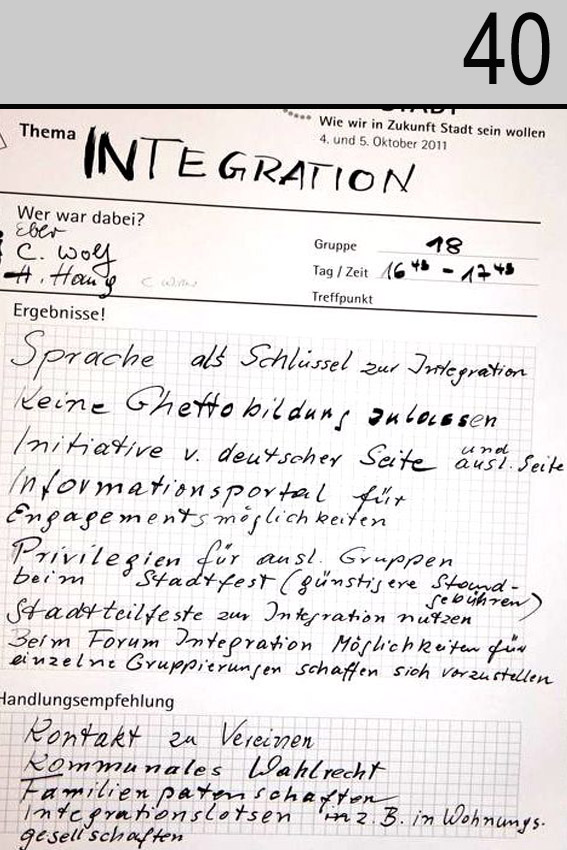 40
STADT
Wie wir in Zukunft Stadt sein wollen
4. und 5. Oktober 2011
Thema INTEGRATION
Wer war dabei?
Eber
C. Wolf
H. Haug
Gruppe 18
Tag / Zeit 16 45 - 17 45
Treffpunkt
Ergebnisse!
Sprache als Schlüssel zur Integration
Keine Ghettobildung zulassen
Initiative v. deutscher Seite und ausl. Seite
Informationsportal für
Engagementsmöglichkeiten
Privilegien für ausl. Gruppen
beim Stadtfest (günstigere Stand-
gebühren)
Stadtteilfeste zur Integration nutzen
Beim Forum Integration Möglichkeiten für
einzelne Gruppierungen schaffen sich vorzustellen
Handlungsempfehlung
Kontakt zu Vereinen
Kommunales Wahlrecht
Familienpatenschaften
Integrationslotsen in z.B. in Wohnungs-
gesellschaften